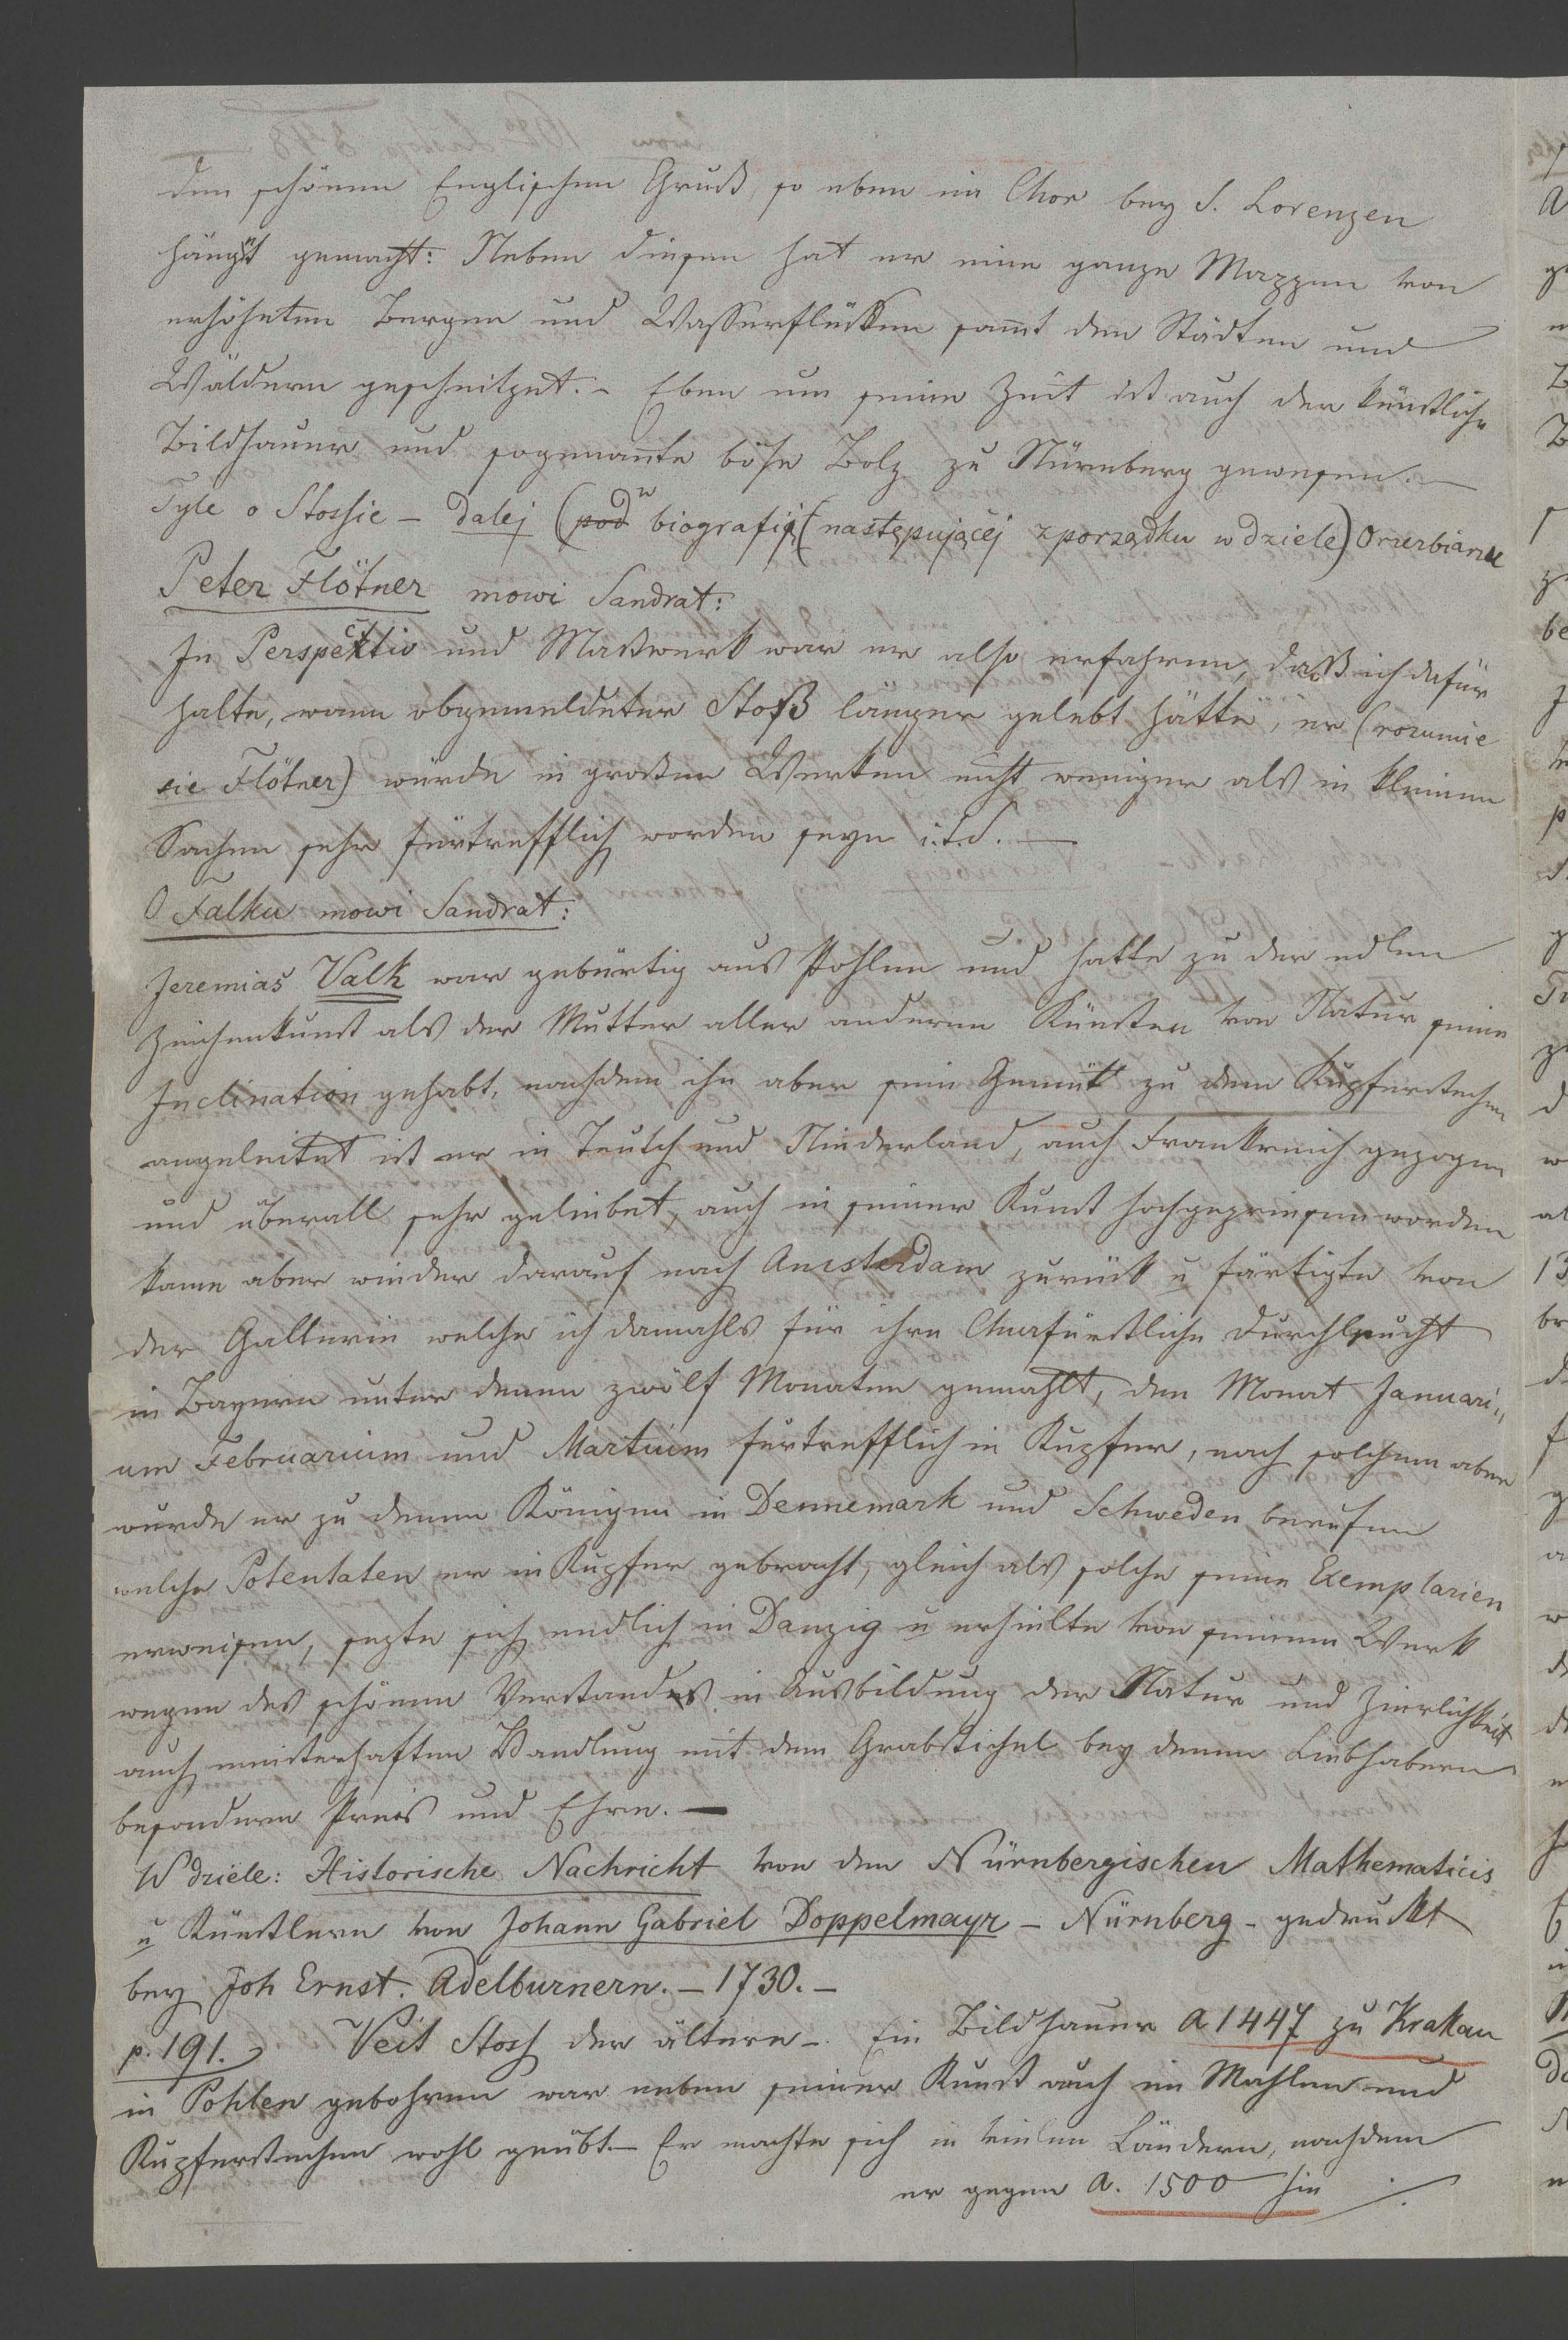 den schönen Englischen Gruß, so eben im Chor bey S. Lorenzen
hängt gemacht: Neben diesem hat er eine ganze Mappen von
erhöheten Bergen und Wasserflüssen samt den Städten und
Wäldern geschnitzet. – Eben um seine Zeit ist auch der künstliche
Bildhauer und sogenannte böse Bolz zu Nürnberg gewesen. –
Tyle o Stossie – dalej (pod w biografij (następującéj z porządku w dziele)
Peter Flötner mowi Sandrat:
In Perspectiv und Maßwerk war er also erfahren, daß ich dafür
halte, wann obgemeldeter Stoß länger gelebt hätte, er (rozumie
sie Flötner) würde in großen Werken nicht weniger als in kleinen
Sachen sehr fürtrefflich worden seyn i.t.d. –
O Falku mowi Sandrat:
Jeremias Valk war gebürtig aus Pohlen und hatte zu der edlen
Zeichenkunst als der Mutter aller anderen Künsten von Natur seine
Inclination gehabt, nachdem ihn aber sein Gemüt zu dem Kupferstechen
angeleitet ist er in Teutsch und Niederland, auch Frankreich gezogen
und überall sehr geliebet, auch in seiner Kunst hochgepriesen worden
kame aber wieder darauf nach Amsterdam zurück u färtigte von
der Gallerie welche ich damahls für ihre Churfürstliche Durchleucht
in Bayern unter denen zwölf Monaten gemahlt, den Monat Januari„
um Februarium und Martium fürtrefflich in Kupfer, nach solchem aber
wurde er zu denen Königen in Dennemark und Schweden berufen
welche Potentaten er in Kupfer gebracht, gleich als solche seine Exemplarien
erweisen, sezte sich endlich in Danzig u erhielte von seinem Werk
wegen des schönen Verstandes in Ausbildung der Natur und Zierlichkeit
auch meisterhaften Handlung mit dem Grabstichel bey denen Liebhabern
besondern Preis und Ehre. –
W dziele: Historische Nachricht von den Nürnbergischen Mathematicis
u Künstlern von Johann Gabriel Doppelmayr – Nürnberg – gedruckt
bey Joh Ernst. Adelburnern. – 1730. –
p. 191. Veit Stosz der ältere – Ein Bildhauer A 1447 zu Krakau
in Pohlen gebohren war neben seiner Kunst auch im Mahlen und
Kupferstechen wohl geübt. – Er machte sich in vielen Ländern, nachdem
er gegen A. 1500 hin